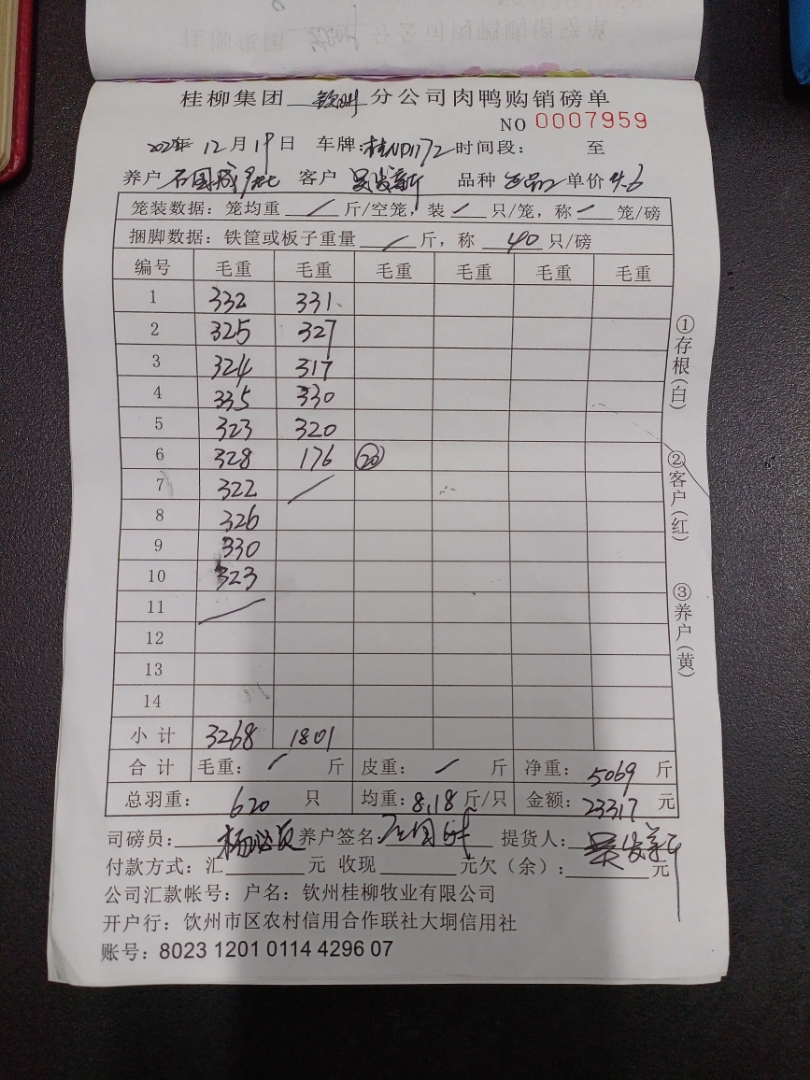 桂柳集团 钦州 分公司肉鸭购销磅单
NO 0007959
12月19日 车牌:桂ND1172 时间段: 至
养户 石国成 客户 吴发新 品种 单价 4.6
笼装数据:笼均重 / 斤/空笼,装 / 只/笼,称 / 笼/磅
捆脚数据:铁筐或板子重量 / 斤,称 40 只/磅
编号 毛重 毛重 毛重 毛重 毛重 毛重
1 332 331
2 325 327
3 324 317
4 335 330
5 323 320
6 328 176 20
7 322 /
8 326
9 330
10 323
11 /
12
13
14
小计 3268 1801
合计 毛重: / 斤 皮重: / 斤 净重: 5069 斤
总羽重: 620 只 均重: 8.18 斤/只 金额: 23317 元
司磅员: 养户签名: 石国成 提货人: 吴发新
付款方式:汇 元 收现 元欠(余): 元
公司汇款帐号:户名:钦州桂柳牧业有限公司
开户行:钦州市区农村信用合作联社大垌信用社
账号:8023 1201 0114 4296 07
①存根(白)
②客户(红)
③养户(黄)